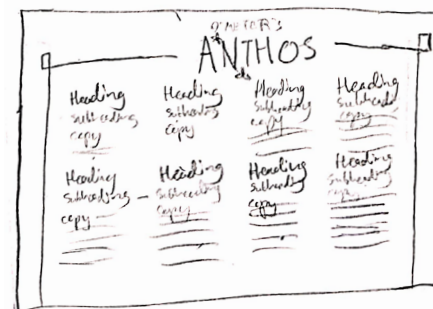 ANTHOS
Heading
subheading
copy
Heading
subheading
copy
Heading
subheading
copy
Heading
subheading
copy
Heading
subheading
copy
Heading
subheading
copy
Heading
subheading
copy
Heading
subheading
copy